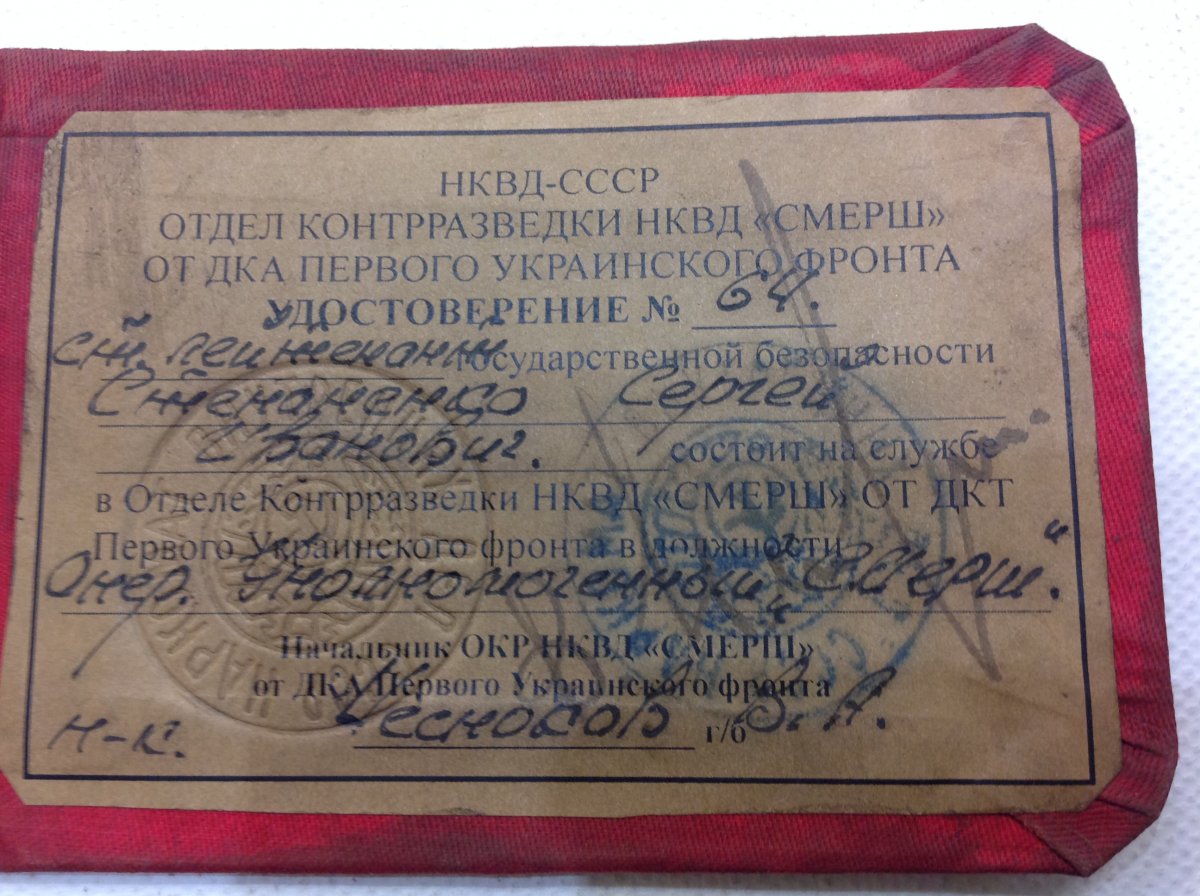 НКВД-СССР
ОТДЕЛ КОНТРРАЗВЕДКИ НКВД «СМЕРШ»
ОТ ДКА ПЕРВОГО УКРАИНСКОГО ФРОНТА
УДОСТОВЕРЕНИЕ № 64.
ст. лейтенант государственной безопасности
Степаненко Сергей
Иванович. состоит на службе
в Отделе Контрразведки НКВД «СМЕРШ» ОТ ДКТ
Первого Украинского фронта в должности
Опер. Уполномоченный "Смерш."
Начальник ОКР НКВД «СМЕРШ»
от ДКА Первого Украинского фронта
н-к. Чесноков г/б В. А.